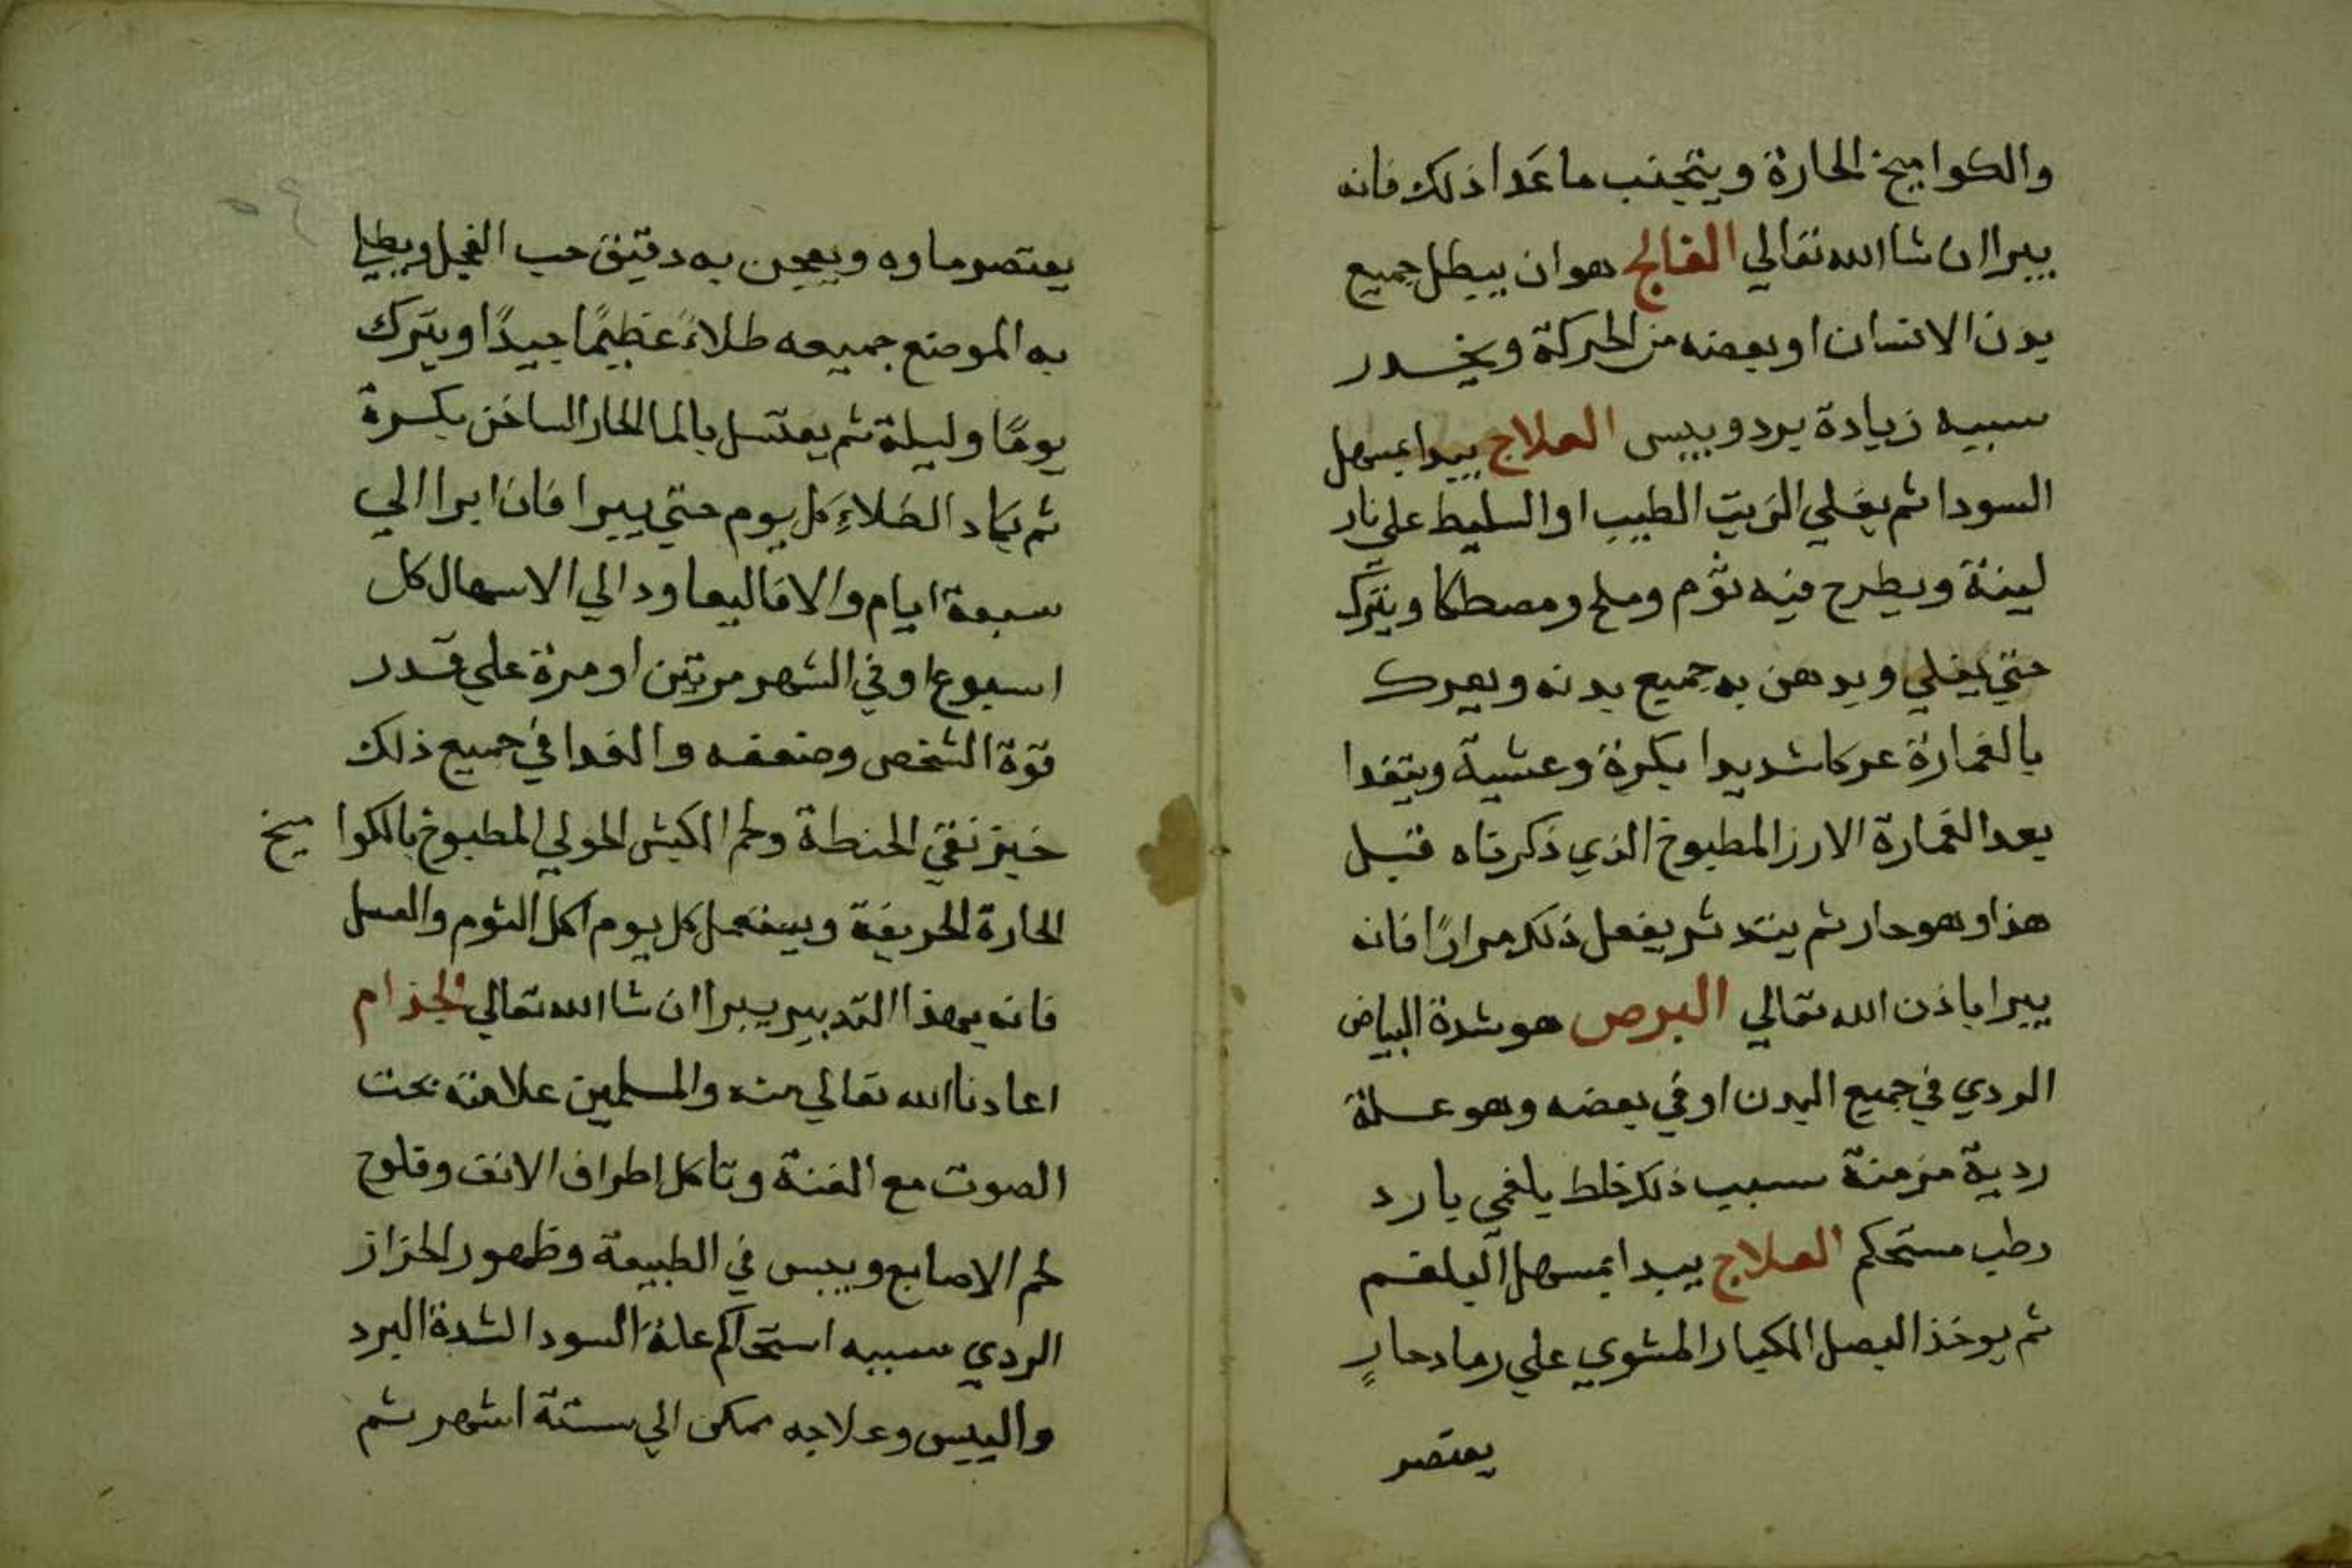 والكواميخ الحارة ويتجنب ما عَدا ذلك فانه
يبرا ان شا الله تعالي الفالج هو ان يبطل جميع
بدن الانسان او بعضه من الحركة ويخدر
سببه زيادة برد ويبس العلاج يبدا بمسهل
السودا ثم يغلي الزيت الطيب او السليط علي نار
لينة ويطرح فيه ثوم وملح ومصطكا ويترك
حتي يغلي ويدهن به جميع بدنه ويعرك
بالغمارة عركا شديدا بكرة وعشية ويتغدا
بعد الغمارة الارز المطبوخ الذي ذكرناه قبل
هذا وهو حار ثم يتدثر يفعل ذلك مرارًا فانه
يبرا باذن الله تعالي البرص هو شدة البياض
الردي في جميع البدن او في بعضه وهو علة
ردية مزمنة سبب ذلك خلط بلغمي بارد
رطب مستحكم العلاج يبدا بمسهل البلغم
ثم يوخذ البصل الكبار المشوي علي رماد حارٍ
يعتصر
يعتصر ماوه ويعجن به دقيق حب الفجل ويطلي
به الموضع جميعه طلاءً عظيمًا جيدًا ويترك
يومًا وليلة ثم يغتسل بالما الحار الساخن بكرة
ثم يعاد الطلاءِ كل يوم حتي يبرا فان ابرا الي
سبعة ايام والا فاليعاود الي الاسهال كل
اسبوع او في الشهر مرتين او مرة علي قدر
قوة الشخص وضعفه والغدا في جميع ذلك
خبز نقي الحنطة ولحم الكبش الحولي المطبوخ بالكواميخ
الحارة الحريفة ويستعمل كل يوم اكل الثوم والعسل
فانه بهذا التدبير يبرا ان شا الله تعالي الجذام
اعادنا الله تعالي منه والمسلمين علامته بحت
الصوت مع الغنة وتاكل اطراف الانف وقلوح
لحم الاصابع ويبس في الطبيعة وظهور الحزاز
الردي سببه استحاكم علة السودا لشدة البرد
واليبس وعلاجه ممكن الي ستة اشهر ثم